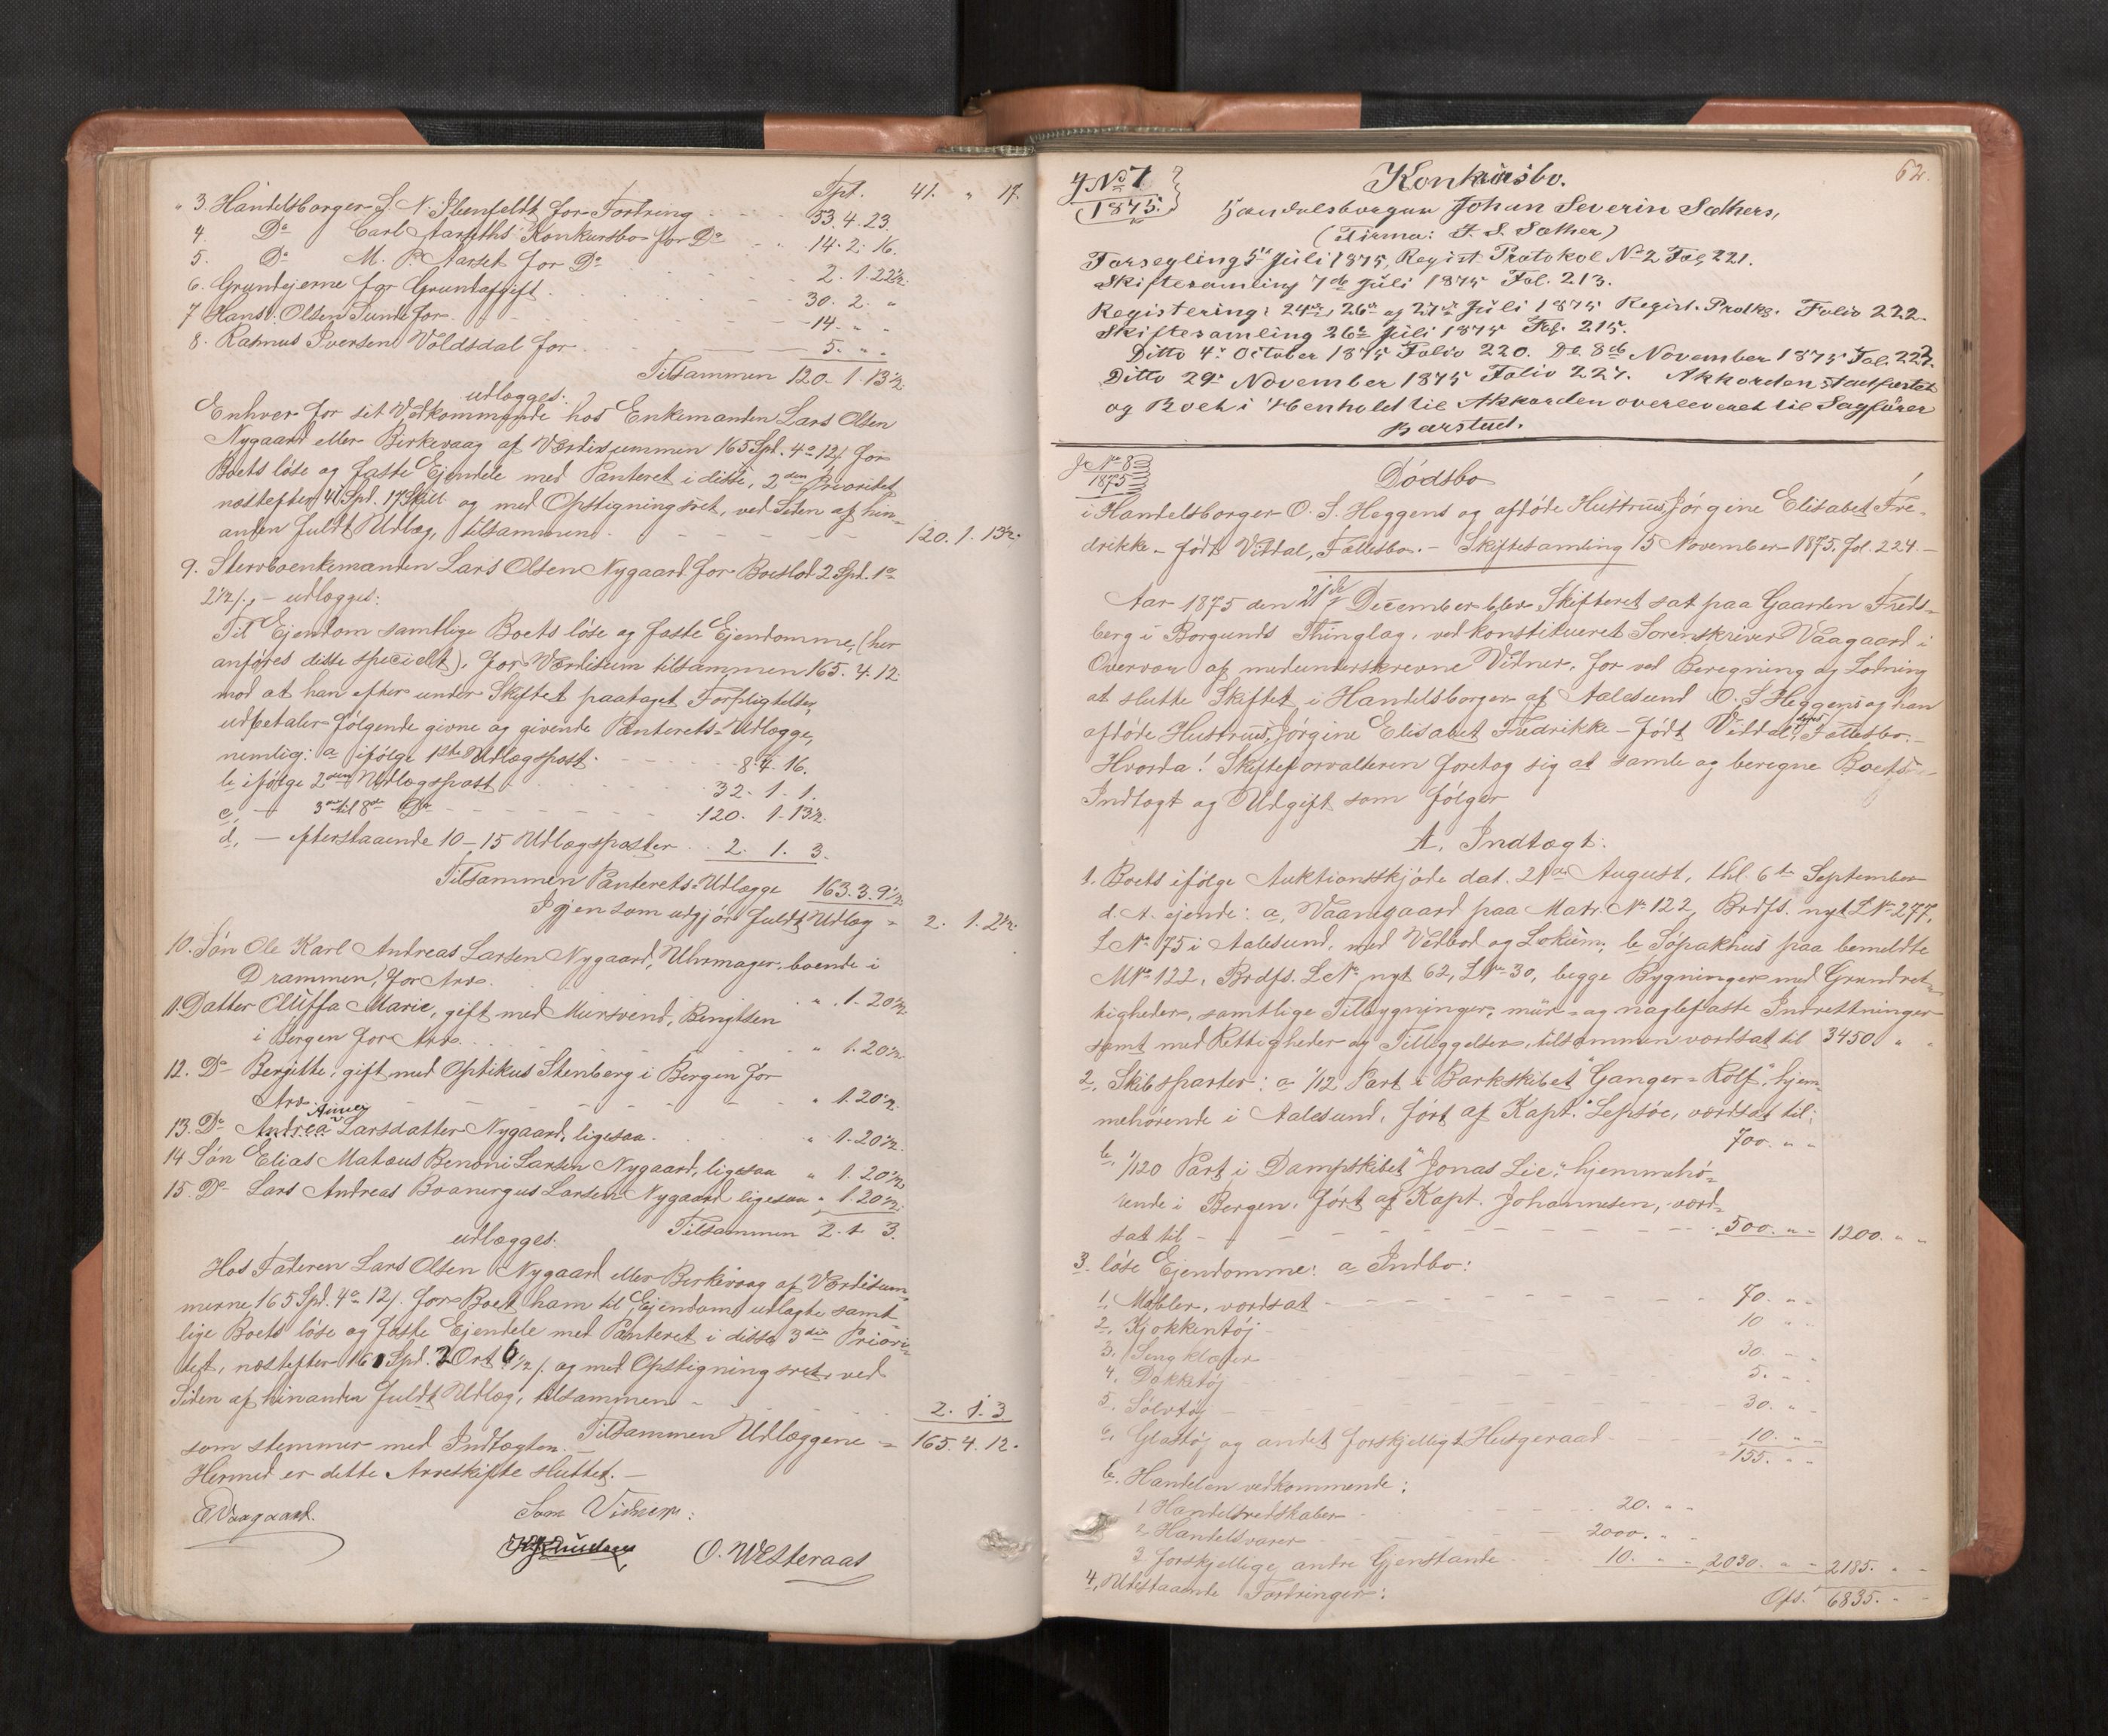 Tpt. 41. " 17.
" 3. Handelsborger L. N. for Fordring 53. 4. 23.
4. Do Carl Aarseths Konkursbo for Do 14. 2. 16.
5. Do M. P. Aarset for Do 2. 1. 22½.
6. Grundejerne for Grundafgift 30. 2. "
7 Hans Olsen Sunde for 14. " "
8. Rasmus Iversen Voldsdal for 5. " "
Tilsammen 120. 1. 13½
udlægges:
Enhver for sit Vedkommende hos Enkemanden Lars Olsen
Nygaard eller Birkevaag af Værdisummen 165 Spd. 4 o 12 ß for
Boets løse og faste Ejendele med Panteret i disse, 2den Prioritet
næstefter 41 Spd. 17 Skill og med Opstigningsret, ved Siden af hin-
anden fuldt Udlæg, tilsammen 120. 1. 13½.
9. Stervboenkemanden Lars Olsen Nygaard for Boeslod 2 Spd. 1 o
2½ ß, - udlægges:
Til Ejendom samtlige Boets løse og faste Ejendomme, (her
anføres disse specielt), for Værdisum tilsammen 165. 4. 12.
mod at han efter under Skiftet paataget Forpligtelse,
udbetaler følgende givne og givende Panterets-Udlægge,
nemlig: a ifølge 1ste Udlægspost 8. 4. 16.
b ifølge 2den Udlægspost 32. 1. 1.
c, — 3die til 8de Do 120. 1. 13½.
d, — efterstaaende 10-15 Udlægsposter 2. 1. 3.
Tilsammen Panterets-Udlægge 163. 3. 9½
Igjen som udgjør fuldt Udlæg = 2. 1. 2½.
10. Søn Ole Karl Andreas Larsen Nygaard, Uhrmager, boende i
Drammen, for Arv. " 1. 20½
11. Datter Oliffa Marie, gift med Mursvend, Bengtsen
i Bergen for Arv " 1. 20½.
12. Do Bergitte, gift med Optikus Stenberg i Bergen for
Arv. " 1. 20½.
13. Do Andrea Larsdatter Nygaard, ligesaa " 1. 20½
14 Søn Elias Matæus Benoni Larsen Nygaard, ligesaa " 1. 20½
15. Do Lars Andreas Boanerges Larsen Nygaard ligesaa " 1. 20½.
udlægges. Tilsammen 2. 1. 3.
Hos Faderen Lars Olsen Nygaard eller Birkevaag af Værdisum-
merne 165 Spd. 4 o 12 ß. for Boet ham til Ejendom udlagte samt-
lige Boets løse og faste Ejendele med Panteret i disse 3die Priori-
tet, næstefter 161 Spd. 2 Ort 6½ ß. og med Opstigningsret, ved
Siden af hinanden fuldt Udlæg, tilsammen 2. 1. 3
Tilsammen Udlæggene = 165. 4. 12.
som stemmer med Indtægten.
Hermed er dette Arveskifte sluttet. —
EVaagaard. Som Vidner:
O. Westeraas
62.
No 7
1875.
Konkursbo.
Handelsborger Johan Severin Sæthers,
(Firma: J. S. Sæther)
Forsegling 5te Juli 1875, Regist. Protokol No 2 Fol. 221.
Skiftesamling 7de Juli 1875 Fol. 213.
Registering: 24de, 26de og 27de Juli 1875 Regist. Protks. Folio 222.
Skiftesamling 26de Juli 1875 Fol. 215.
Ditto 4de October 1875 Folio 220. Do 8de November 1875 Fol. 223.
Ditto 29de November 1875 Folio 227. Akkorden stadfæstet
og Boet i Henhold til Akkorden overleveret til Sagfører
Barstad.
No 8
1875
Dødsbo
i Handelsborger O. S. Heggens og afdøde Hustrues, Jørgine Elisabet Fre-
drikke – født Viddal, Fællesbo. – Skiftesamling 15 November 1875. Fol. 224. –
Aar 1875 den 21de December blev Skifteret sat paa Gaarden Freds-
berg i Borgunds Thinglag, ved konstitueret Sorenskriver Vaagaard i
Overvær af medunderskrevne Vidner, for ved Beregning og Lodning
at slutte Skiftet i Handelsborger af Aalesund O. S Heggens og han
afdøde Hustrues, Jørgine Elisabet Fredrikke – født Viddal, Fællesbo. –
Hvorda! Skifteforvalteren foretog sig at samle og beregne Boets
Indtægt og Udgift som følger
A, Indtægt:
1. Boets ifølge Auktionsskjøde dat. 21de August, thl. 6te September
d. A. ejende: a, Vaanegaard paa Matr. No 122, Brdfs. nyt L No 277,
L No 75 i Aalesund, med Vedbod og Lokum; b Søpakhus paa bemeldte
M No 122, Brdfs. L No nyt 62, L No 30, begge Bygninger med Grundret-
tigheder, samtlige Tilbygninger, mur- og naglefaste Indretninger
samt med Rettigheder og Tilleggelser, tilsammen værdsat til 3450. " "
2, Skibsparter: a 1/12 Part i Barkskibet "Ganger=Rolf", hjem-
mehørende i Aalesund, ført af Kapt. Lepsøe, værdsat til: 700. " "
b, 1/120 Part i Dampskibet "Jonas Lie", hjemmehø-
rende i Bergen. ført af Kapt. Johannesen, værd-
sat til 500. " " 1200. " "
3. løse Ejendomme: a Indbo:
1, Møbler, værdsat 70. " "
2, Kjøkkentøj 10 " "
3, Sengklæder 30. " "
4, Dækketøj 5. " "
5. Sølvtøj 30. " "
6, Glastøj og andet forskjelligt Husgeraad 10. " "
155. " "
b. Handelen vedkommende:
1 Handelsredskaber 20. " "
2, Handelsvarer 2000. " "
3 forskjellige andre Gjenstande 10. " " 2030. " " 2185. " "
4, Udestaaende Fordringer: Ofs. 6835. " "